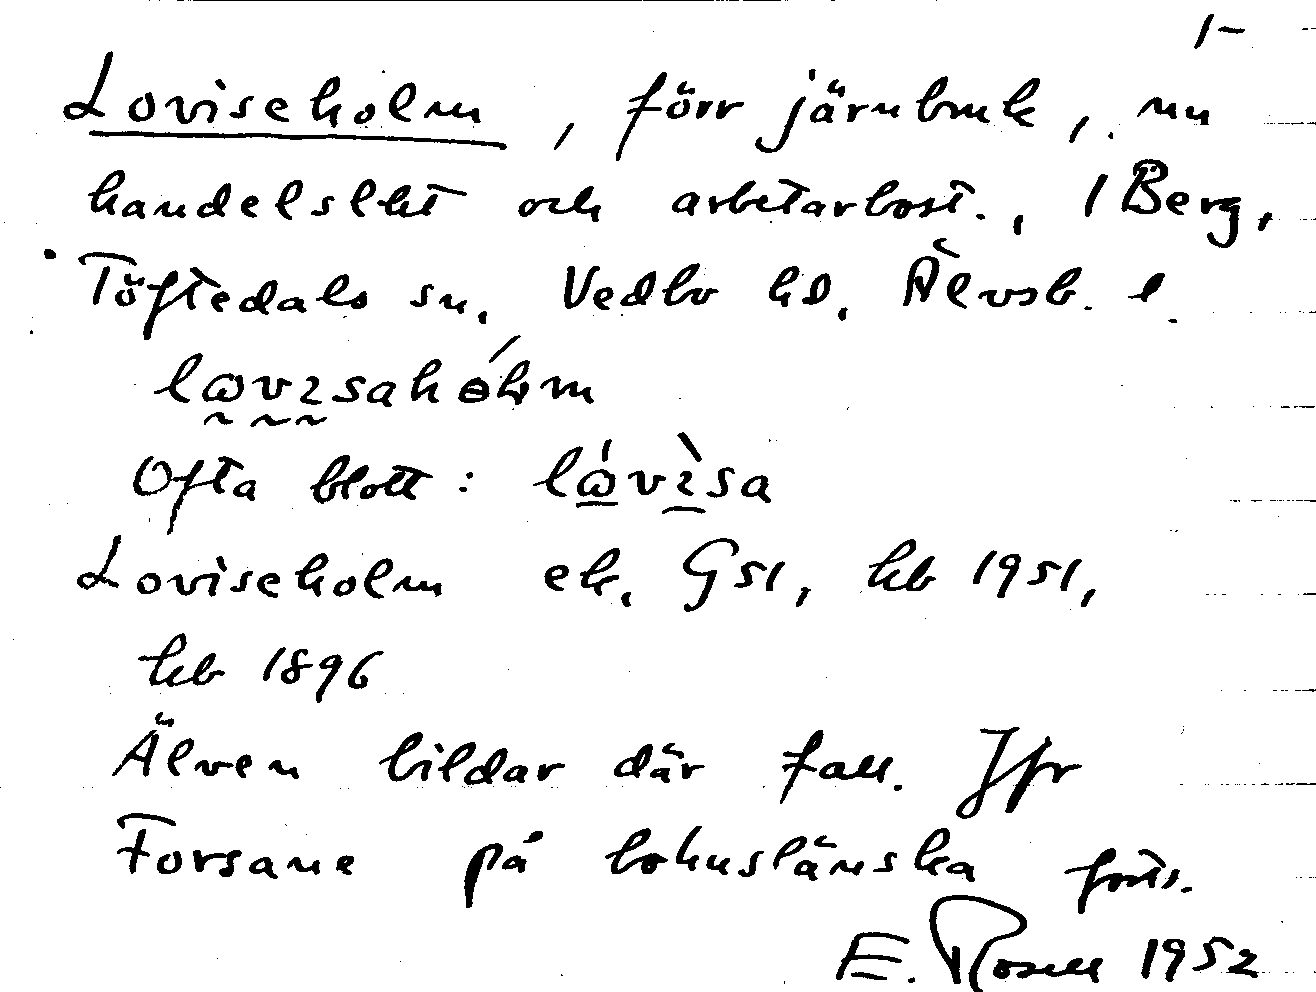 1-
Loviseholm, förr järnbruk, nu
handelslht och arbetarbost., 1 Berg,
Töftedals sn, Vedbo hd. Älvsb. l.
Ofta blott:
Loviseholm ek, G51, kb 1951,
kb 1896
Älven bildar där fall. Jfr
Forsane på bohuslänska
E. Rosell 1952